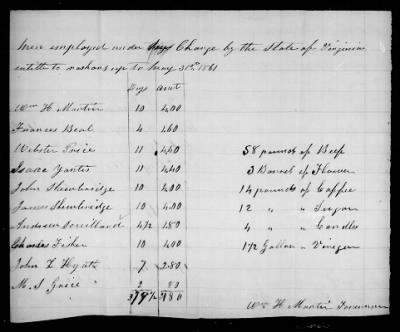 Men employed under my Charge by the State of Virginia
entitle to rashons up to May 31st 1861
Days amt
Wm H Martin 10 4.00
Frances Beal 4 1.60
Webster Grice 11 4.40 58 pounds of Beef
Isaac Yantis 11 4.40 3 Barrel of Flower
John Shewbridge 10 4.00 14 pounds of Coffie
James Shewbridge 10 4.00 12 " " Sugar
Andrew 4 1/2 1.80 4 " " Candles
Charles Fisher 10 4.00 1 1/2 Gallon " Vinegar
John L Hyatt 7 2.80
M. S Grice 2 80
Wm H Martin Foreman